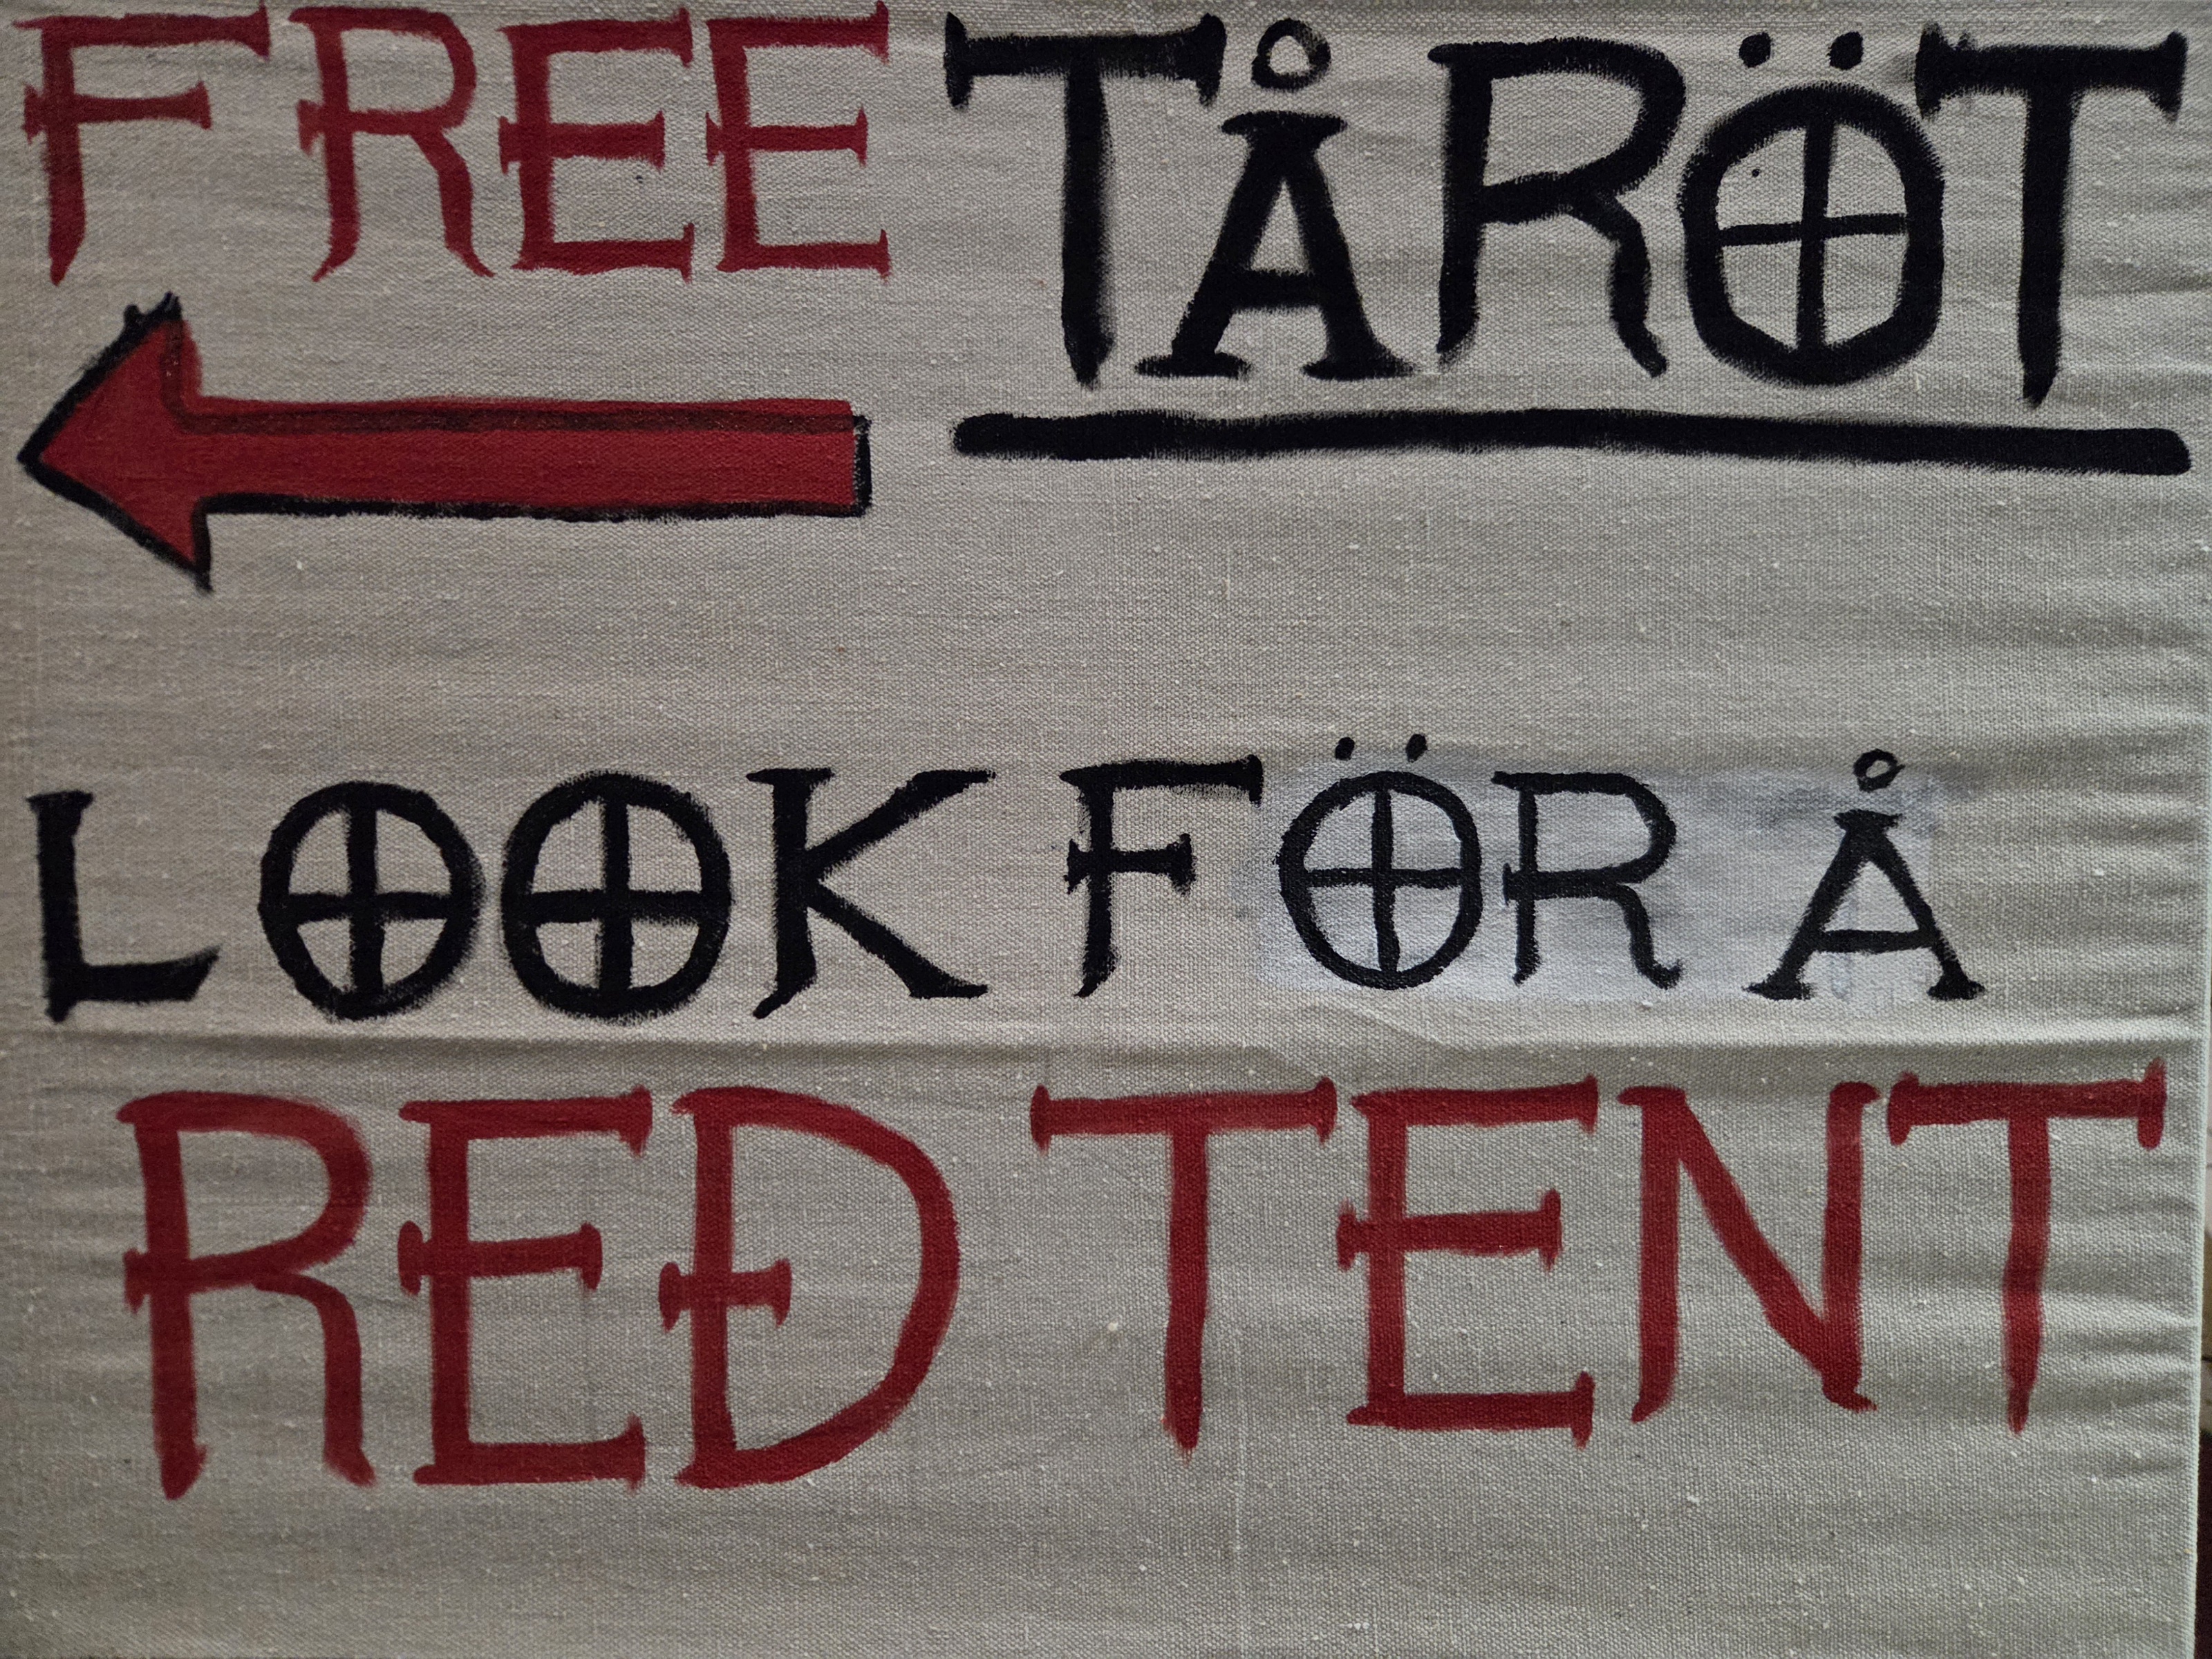 FREE TÅRÖT
LOOK FÖR Å
RED TENT